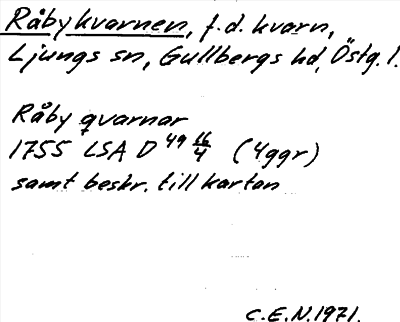 Råbykvarnen, f.d. kvarn,
Ljungs sn, Gullbergs hd, Östg. l.
Råby qvarnar
1755 LSA D 49 16/4 (4ggr)
samt beskr. till kartan
C.E.N. 1971.